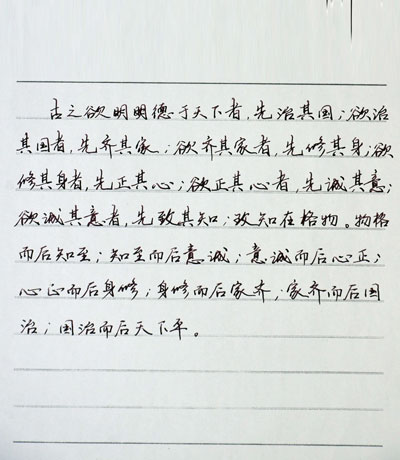 古之欲明明德于天下者，先治其国；欲治
其国者，先齐其家；欲齐其家者，先修其身；欲
修其身者，先正其心；欲正其心者，先诚其意；
欲诚其意者，先致其知；致知在格物。物格
而后知至；知至而后意诚；意诚而后心正；
心正而后身修；身修而后家齐；家齐而后国
治；国治而后天下平。